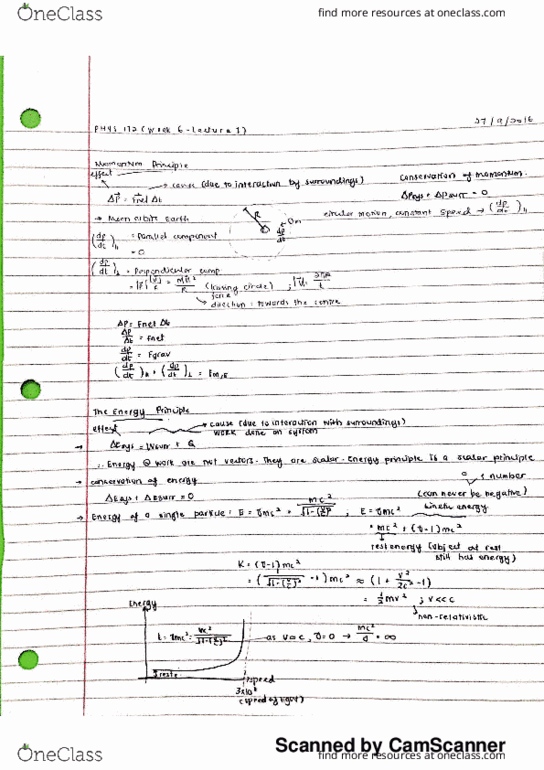 OneClass
find more resources at oneclass.com
27/9/2016
PHYS 172 (Week 6 - Lecture 1)
Momentum Principle
effect → cause (due to interaction by surroundings)
Conservation of momentum.
Δp⃗ = Fnet Δt
Δpsys + Δpsurr = 0
→ Moon orbits Earth
R
circular motion, constant speed → (dp/dt)∥
(dp/dt)∥ = Parallel component
= 0
(dp/dt)⊥ = Perpendicular comp
(kissing circle)
direction: towards the centre
Δp = Fnet Δt
Δp/Δt = Fnet
dp/dt = Fgrav
The Energy Principle
effect → cause (due to interaction with surroundings)
work done on system
→ ΔEsys = Wsurr + Q
∴ Energy @ work are not vectors. They are scalar. Energy principle is a scalar principle
number
→ conservation of energy
(can never be negative)
ΔEsys + ΔEsurr = 0
kinetic energy
→ Energy of a single particle: E = γmc² = mc²/√(1-(v/c)²) ; E = γmc²
= mc² + (γ-1)mc²
rest energy (object at rest
still has energy)
K = (γ-1)mc²
= (1/√(1-(v/c)²) -1)mc² ≈ (1 + v²/2c² -1)
= ½mv² ; v<<c
non-relativistic
Energy
as v=c, γ=0 → mc²/0 = ∞
speed
3x10⁸
(speed of light)
Scanned by CamScanner
OneClass
find more resources at oneclass.com